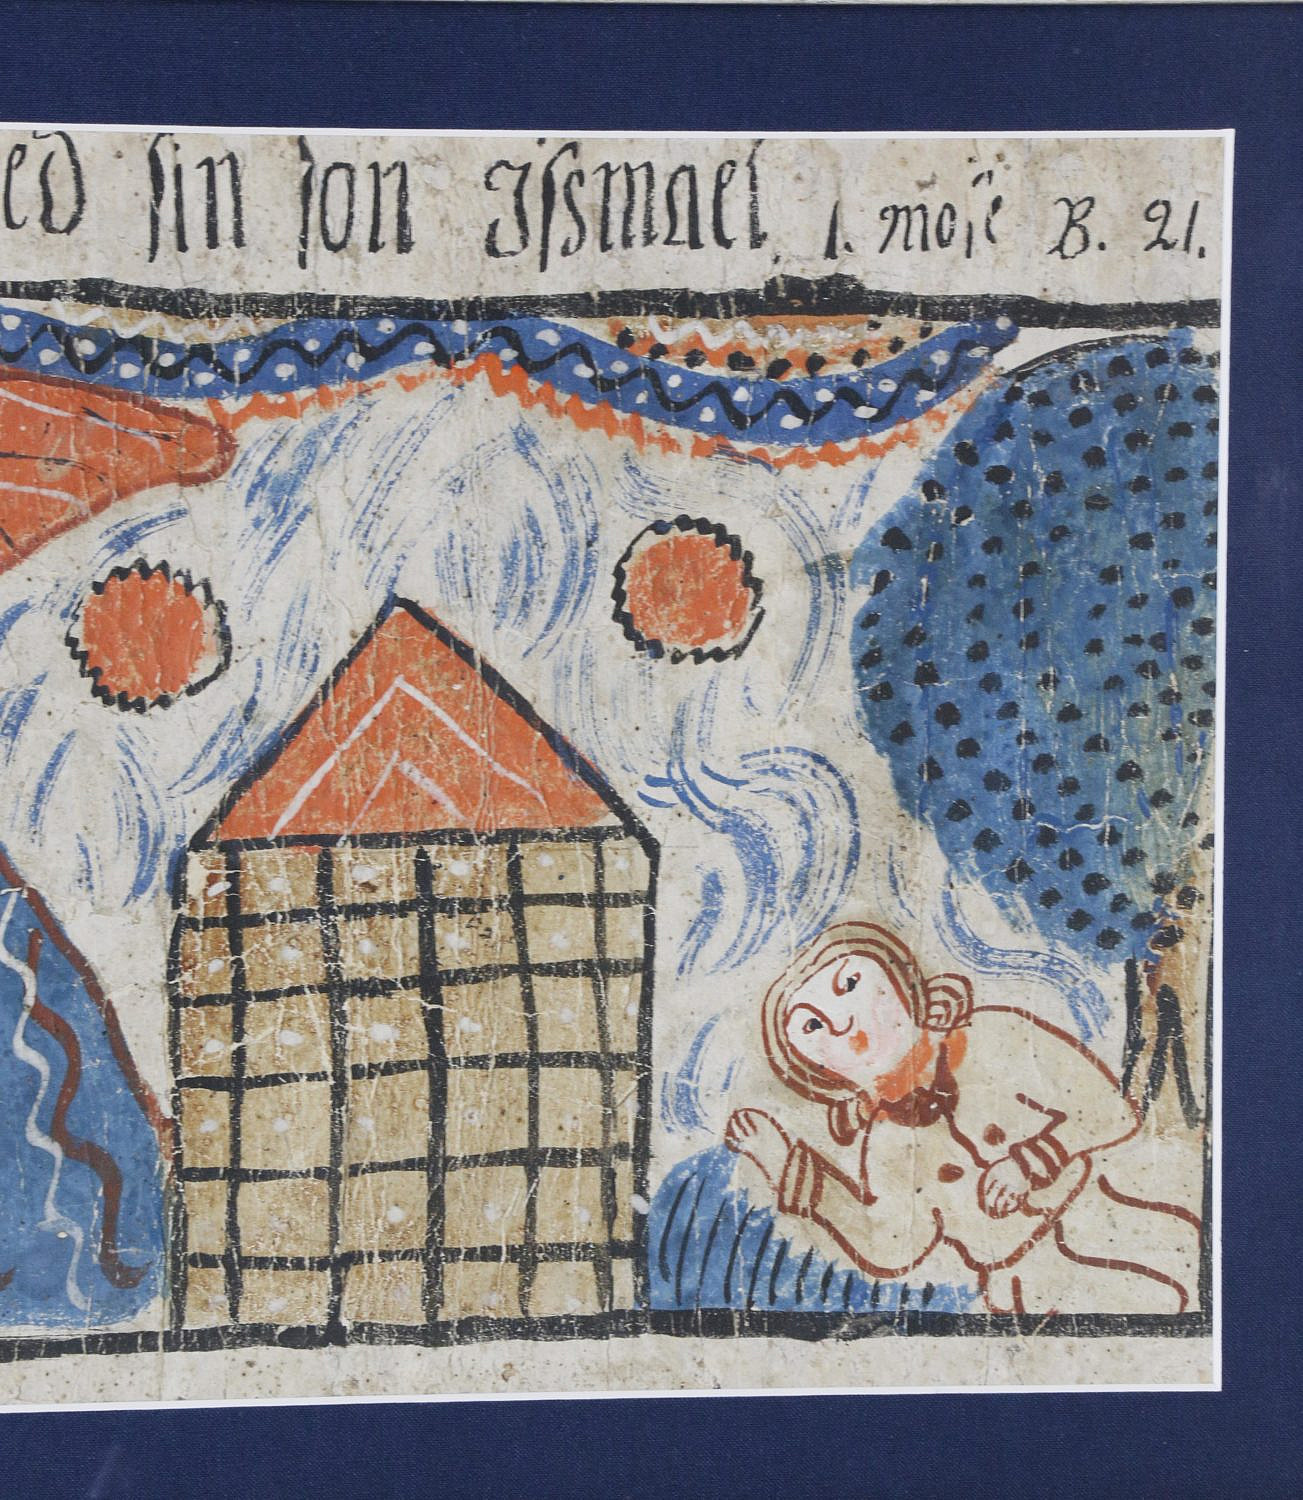 ed sin son Issmael 1. mose B. 21.